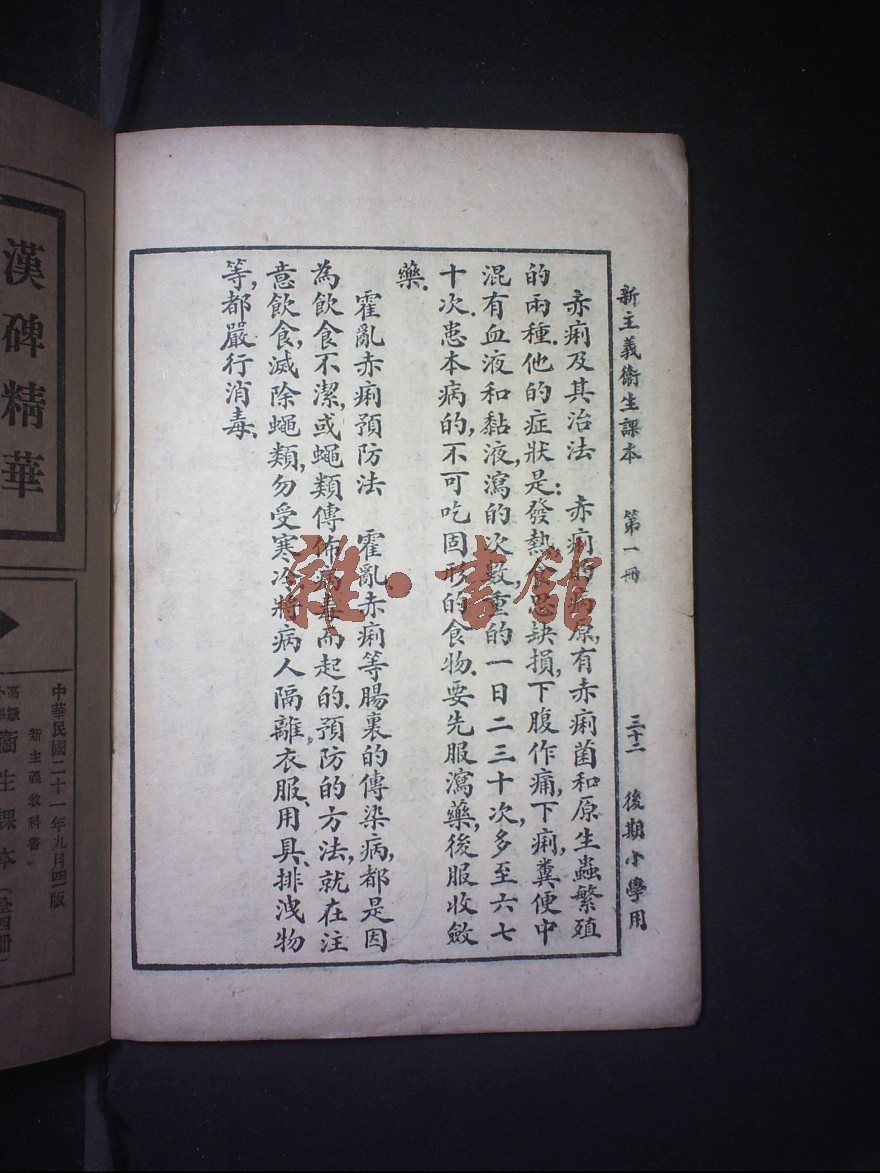 新主義衞生課本　第一冊　三十二　後期小學用
赤痢及其治法　赤痢的病原,有赤痢菌和原生蟲繁殖
的兩種.他的症狀是:發熱,食思缺損,下腹作痛,下痢,糞便中
混有血液和黏液,瀉的次數,重的一日二三十次,多至六七
十次.患本病的,不可吃固形的食物.要先服瀉藥,後服收斂
藥.
霍亂赤痢預防法　霍亂、赤痢等腸裏的傳染病,都是因
為飲食不潔,或蠅類傳佈病毒而起的.預防的方法,就在注
意飲食,滅除蠅類,勿受寒冷,將病人隔離,衣服、用具、排洩物
等,都嚴行消毒.
雜·書館
漢碑精華
中華民國二十一年九月四版
新主義教科書
衞生課本（全四冊）